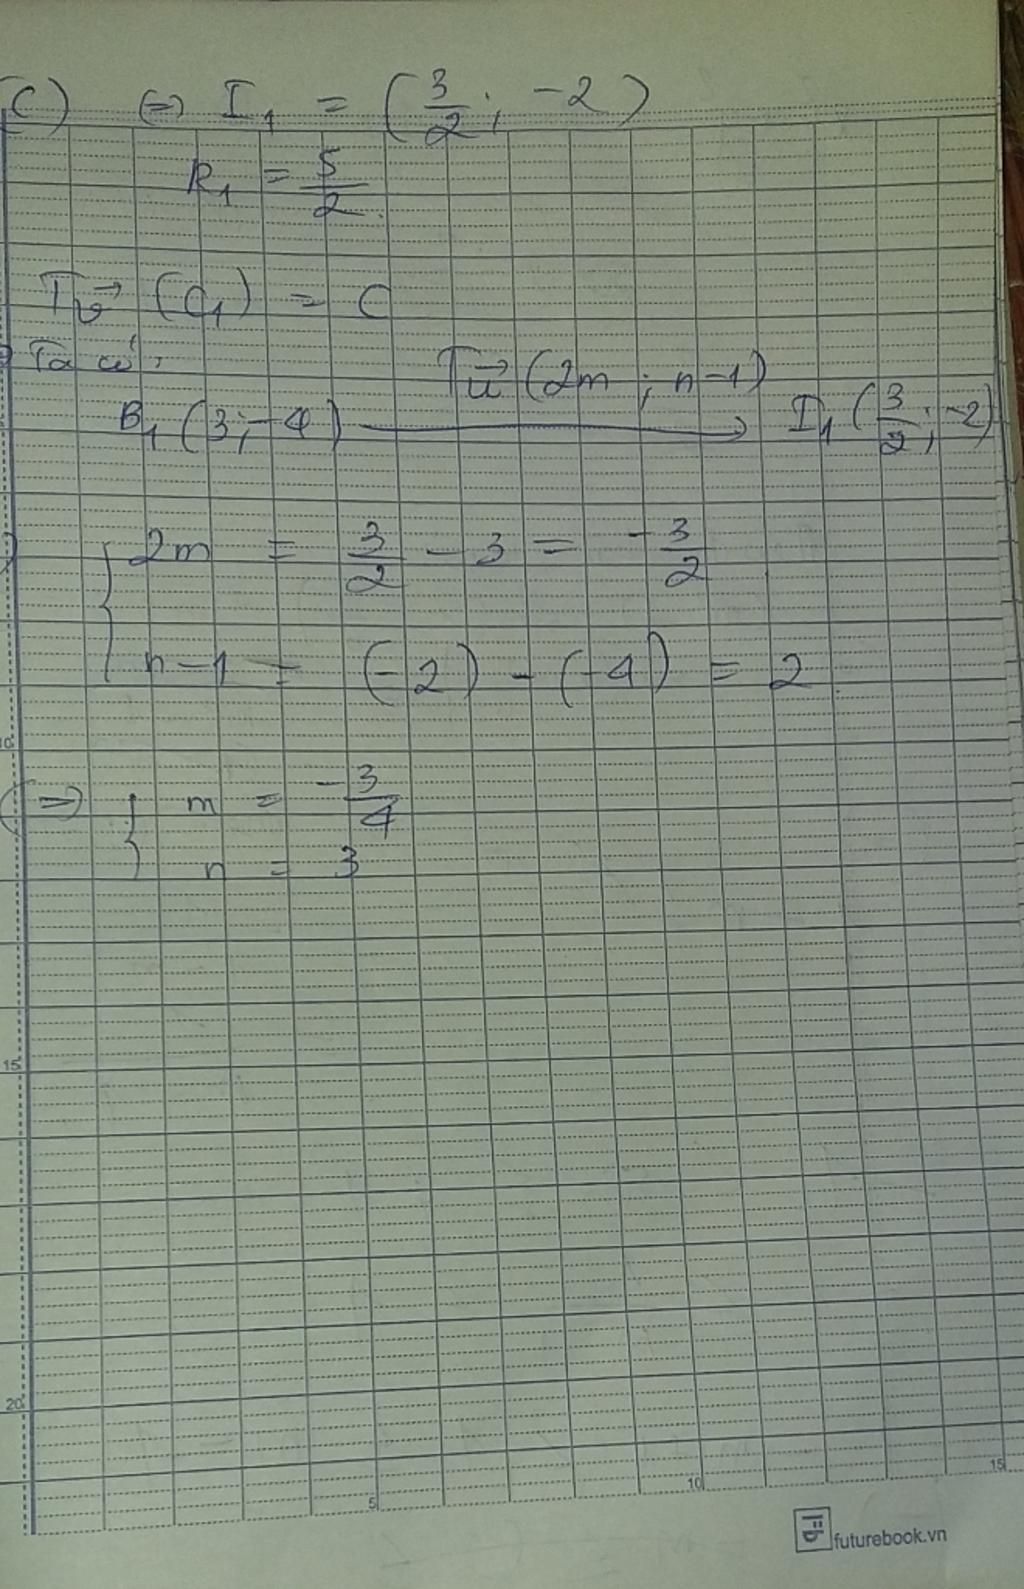 (C) (=) I₁ = (3/2; -2)
R₁ = 5/2
Tv→ (C₁) = C
Ta có:
Tu→ (2m; n-1)
B₁ (3; -4) ⟶ I₁ (3/2; -2)
{ 2m = 3/2 - 3 = -3/2
n-1 = (-2) - (-4) = 2
(=) { m = -3/4
n = 3
10
15
20
5 10 15
futurebook.vn